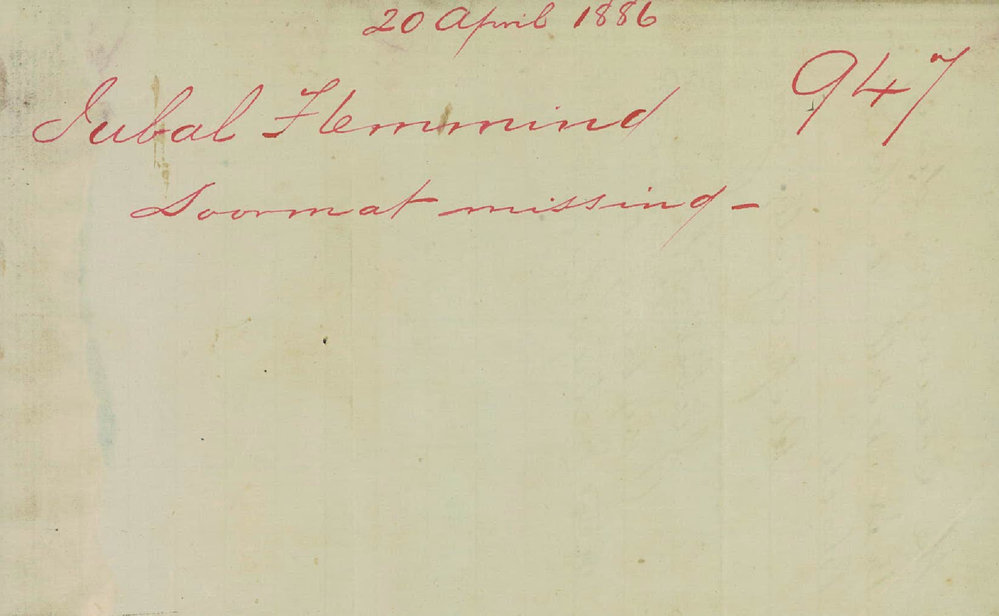 20 April 1886
947
Jubal Flemming
Doormat missing -